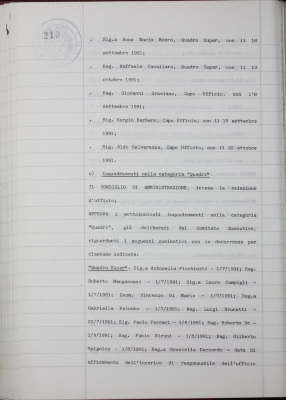 210
. Sig.a Anna Maria Mauro, Quadro Super, con il 16
settembre 1991;
. Rag. Raffaele Cavaliere, Quadro Super, con il 13
ottobre 1991;
. Rag. Giovanni Graziano, Capo Ufficio, con l'8
settembre 1991;
. Sig. Sergio Barbero, Capo Ufficio, con il 15 settembre
1991;
. Sig. Aldo Salvarezza, Capo Ufficio, con il 22 ottobre
1991.
c) Inquadramenti nella categoria "Quadri"
IL CONSIGLIO DI AMMINISTRAZIONE, intesa la relazione
d'ufficio;
APPROVA i sottoindicati inquadramenti nella categoria
"Quadri", già deliberati dal Comitato Esecutivo,
riguardanti i seguenti nominativi con le decorrenze per
ciascuno indicate:
"Quadro Super": Sig.a Antonella Picchietti - 1/7/1991; Rag.
Roberto Manganessi - 1/7/1991; Sig.a Laura Campigli -
1/7/1991; Geom. Vincenzo Di Mario - 1/7/1991; Rag.a
Gabriella Palombo - 1/7/1991; Rag. Luigi Brunetti -
Sig. Paolo Ferrari - Rag. Roberto De -
Rag. Fabio Sironi - Rag. Gilberto
Rag.a Graziella - data di
affidamento dell'incarico di responsabile dell'ufficio